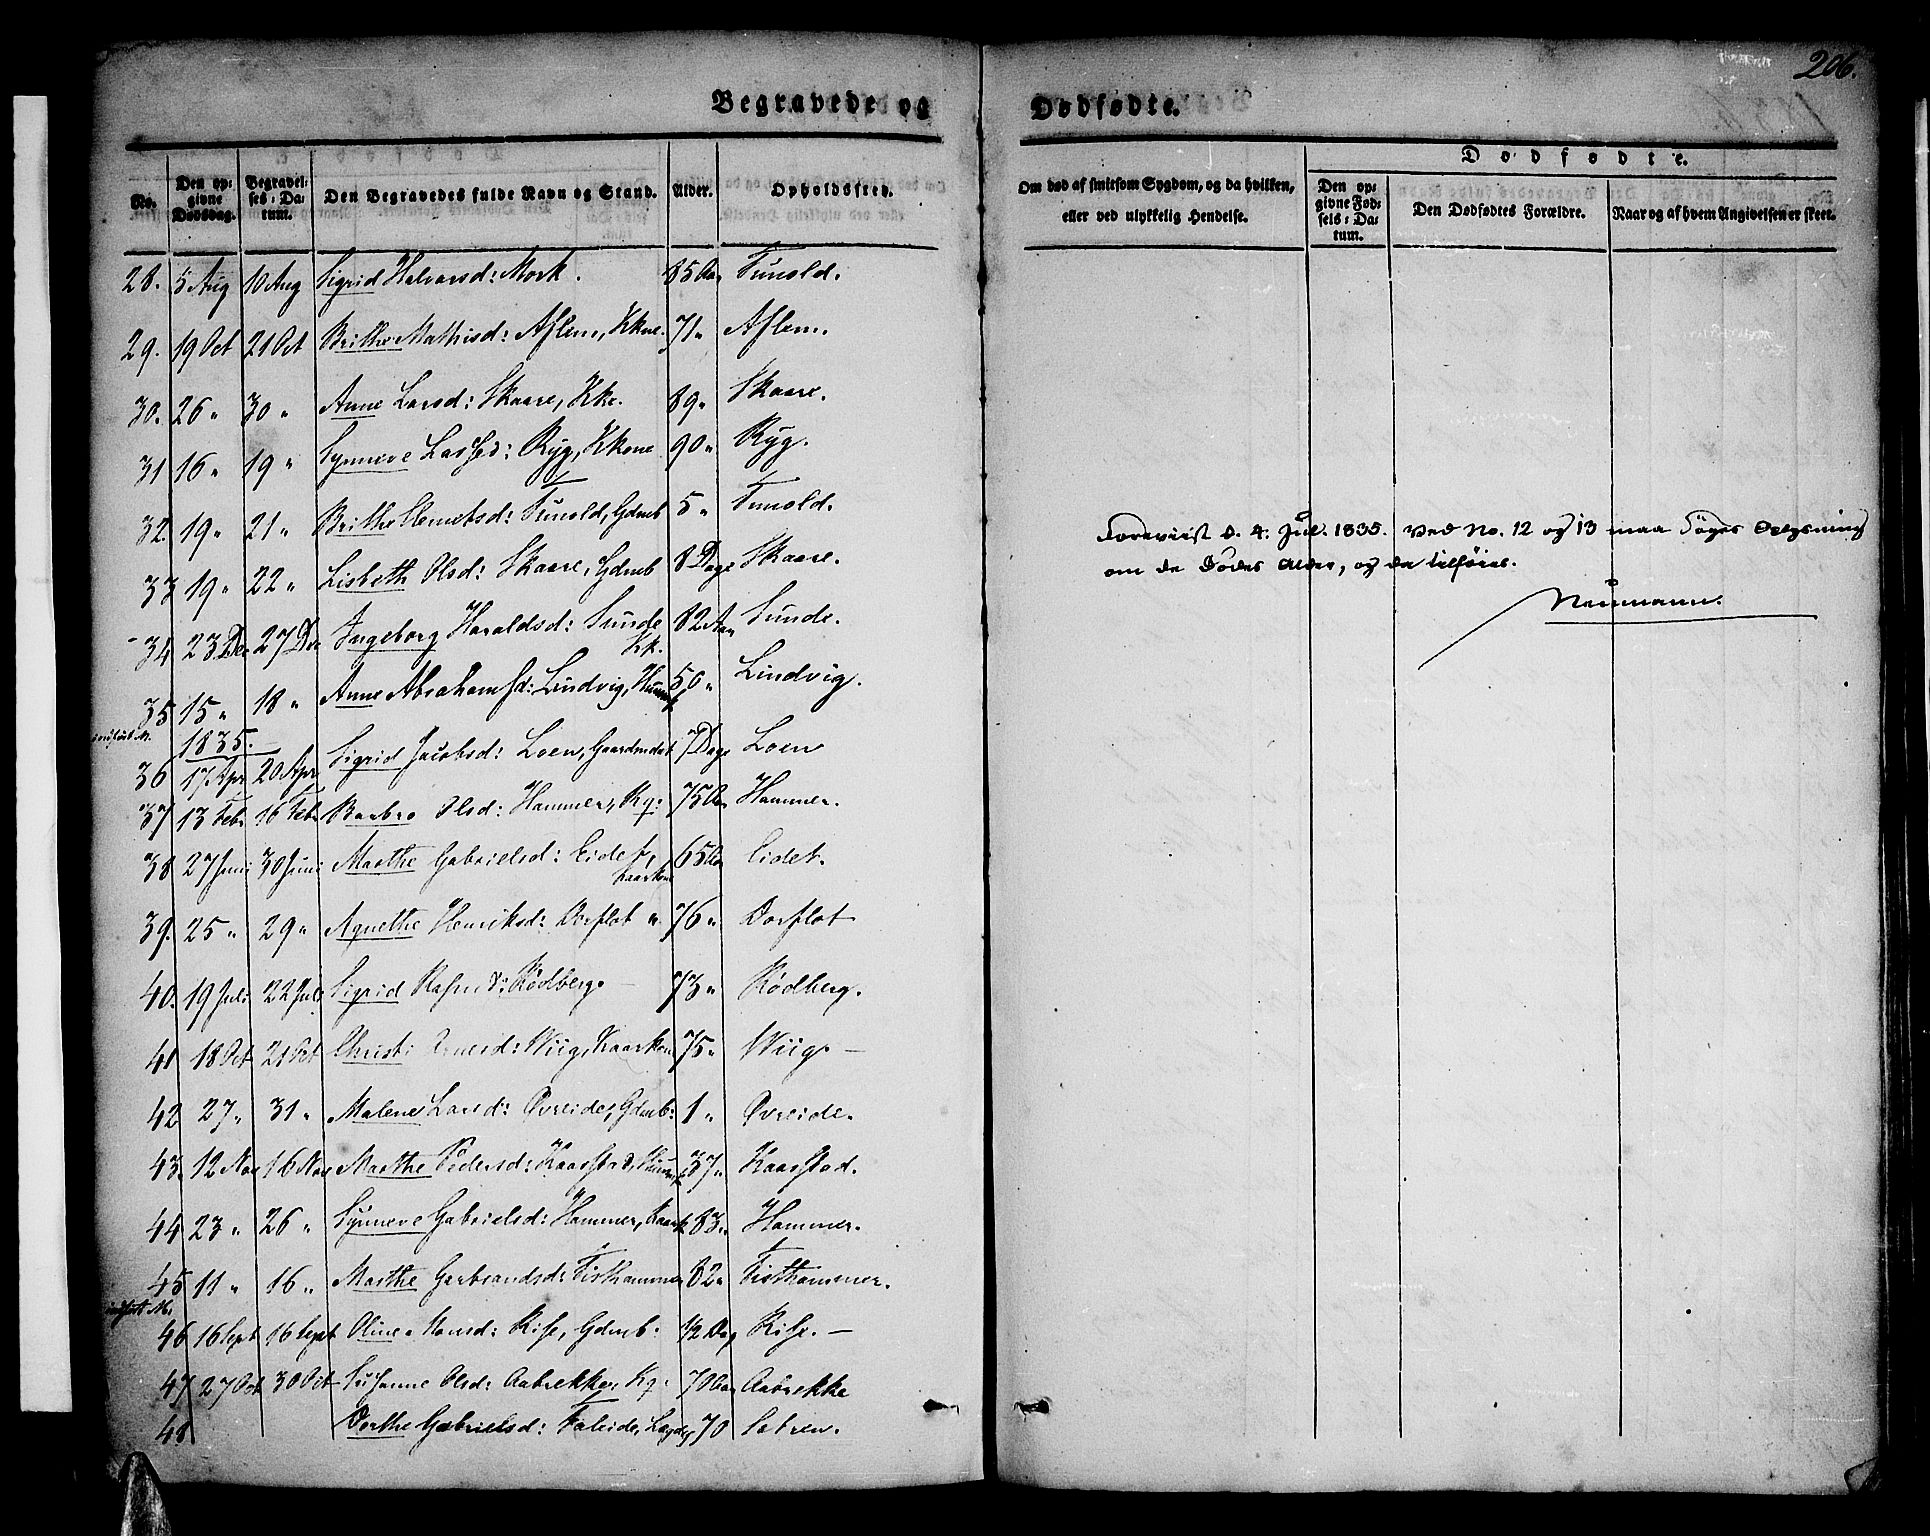 206.
Begravede og Dødfødte.
No.
Den opgivne Dødsdag.
Begravelses-Datum.
Den Begravedes fulde Navn og Stand.
Alder.
Opholdssted.
Om død af smitsom Sygdom, og da hvilken, eller ved ulykkelig Hendelse.
Dødfødte.
Den opgivne Fødsels-Datum.
Den Dødfødtes Forældre.
Naar og af hvem Angivelsen er skeet.
28. 5 Aug 10 Aug Sigrid Halvarsd: Mork. 85 Aar Tunold.
29. 19 Oct 21 Oct Brithe Mathisd: Aflem, Kkne. 71 " Aflem.
30. 26 " 30 " Anne Larsd: Skaare, Kke. 89 " Skaare.
31 16 " 19 " Synneve Lassed: Ryg, Kkone 90 " Ryg.
32. 19 " 21 " Brithe Clemetsd: Tunold, Gdmb 5 " Tunold.
33 19 " 22 " Lisbeth Olsd: Skaare, Gdmb 8 Dage Skaare.
34 23 Dec 27 Dec Ingeborg Haraldsd: Sunde Kk. 82 Aar Sunde.
35 15 " 18 " Anne Abrahamsd: Lindvig, 50 " Lindvig.
1835.
36 17 Apr 20 Apr Sigrid Jacobsd: Loen, 7 Dage Loen
37 13 Febr 16 Febr Barbro Olsd: Hammer, Kg: 75 Aar Hammer.
38 27 Juni 30 Juni Marthe Gabrielsd: Eidet, Kaarkone 65 Aar Eidet.
39. 25 " 29 " Agnethe Henriksd: Dorflot " 76 " Dorflot
40. 19 Juli 22 Juli Sigrid Rasm d: Rödberg 73 " Rödberg.
41 18 Oct 21 Oct Christi Arnesd: Wiig, Kaarkon 75 " Wiig. —
42 27 " 31 " Malene Larsd: Øvreide, Gdmb: 1 " Øvreide.
43. 12 Nov 16 Nov Marthe Pedersd: Kaarstad, 37 " Kaarstad.
44 23 " 26 " Synneve Gabrielsd: Hammer, Kaark 83 " Hammer.
45 11 " 16 " Marthe Gerbrandsd: Tisthammer 82 " Tisthammer.
46 16 Sept 16 Sept Oline Monsd: Rise, Gdmb: 1/2 Dag Rise. —
47 27 Oct 30 Oct Susanne Olsd: Aabrekke, Kg: 70 Aar Aabrekke
48 Dorthe Gabrielsd: Faleide, Lægd 70 Sætren.
Foreviist d. 4. Jul. 1835. Ved No. 12 og 13 maa søges Oplysning
om de Dødes Alder, og da tilføies.
Neumann.